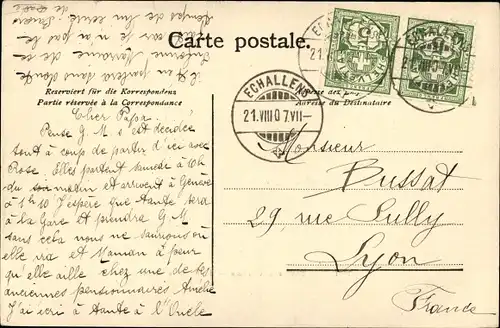 Carte postale.
Reserviert für die Korrespondenz
Partie réservée à la Correspondance
Adresse du Destinataire
ECHALLENS
21.VIII.07.VII-
Cher Papa,
Pense G. M s'est décidée
tout à coup de partir d'ici avec
Rose. Elles partent samedi à 10h
du matin et arrivent à Genève
à 1h10 J'espère que tante sera
à la Gare et prendra G M
sans cela nous ne saurions où
elle va et Maman a peur
qu'elle aille chez une de ses
anciennes pensionnaires Amélie
J'ai écri à tante à l'Oncle
Monsieur
Bussat
29, rue Sully
Lyon
France